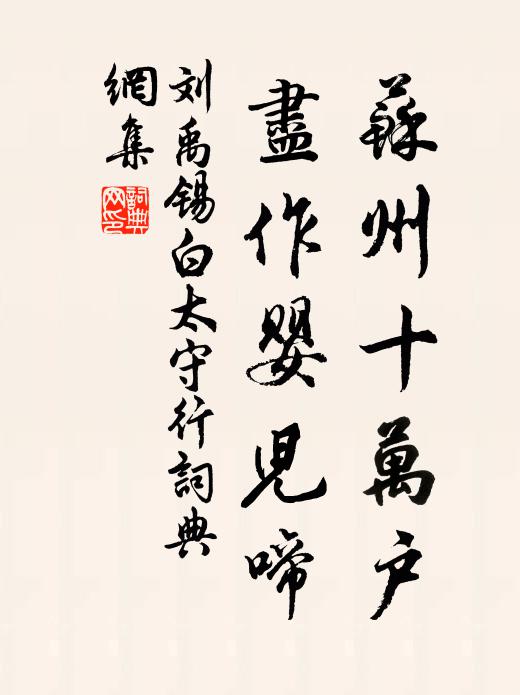 蘇州十萬户
盡作嬰児啼
刘禹锡白太守行詞典
網集
詞典网印